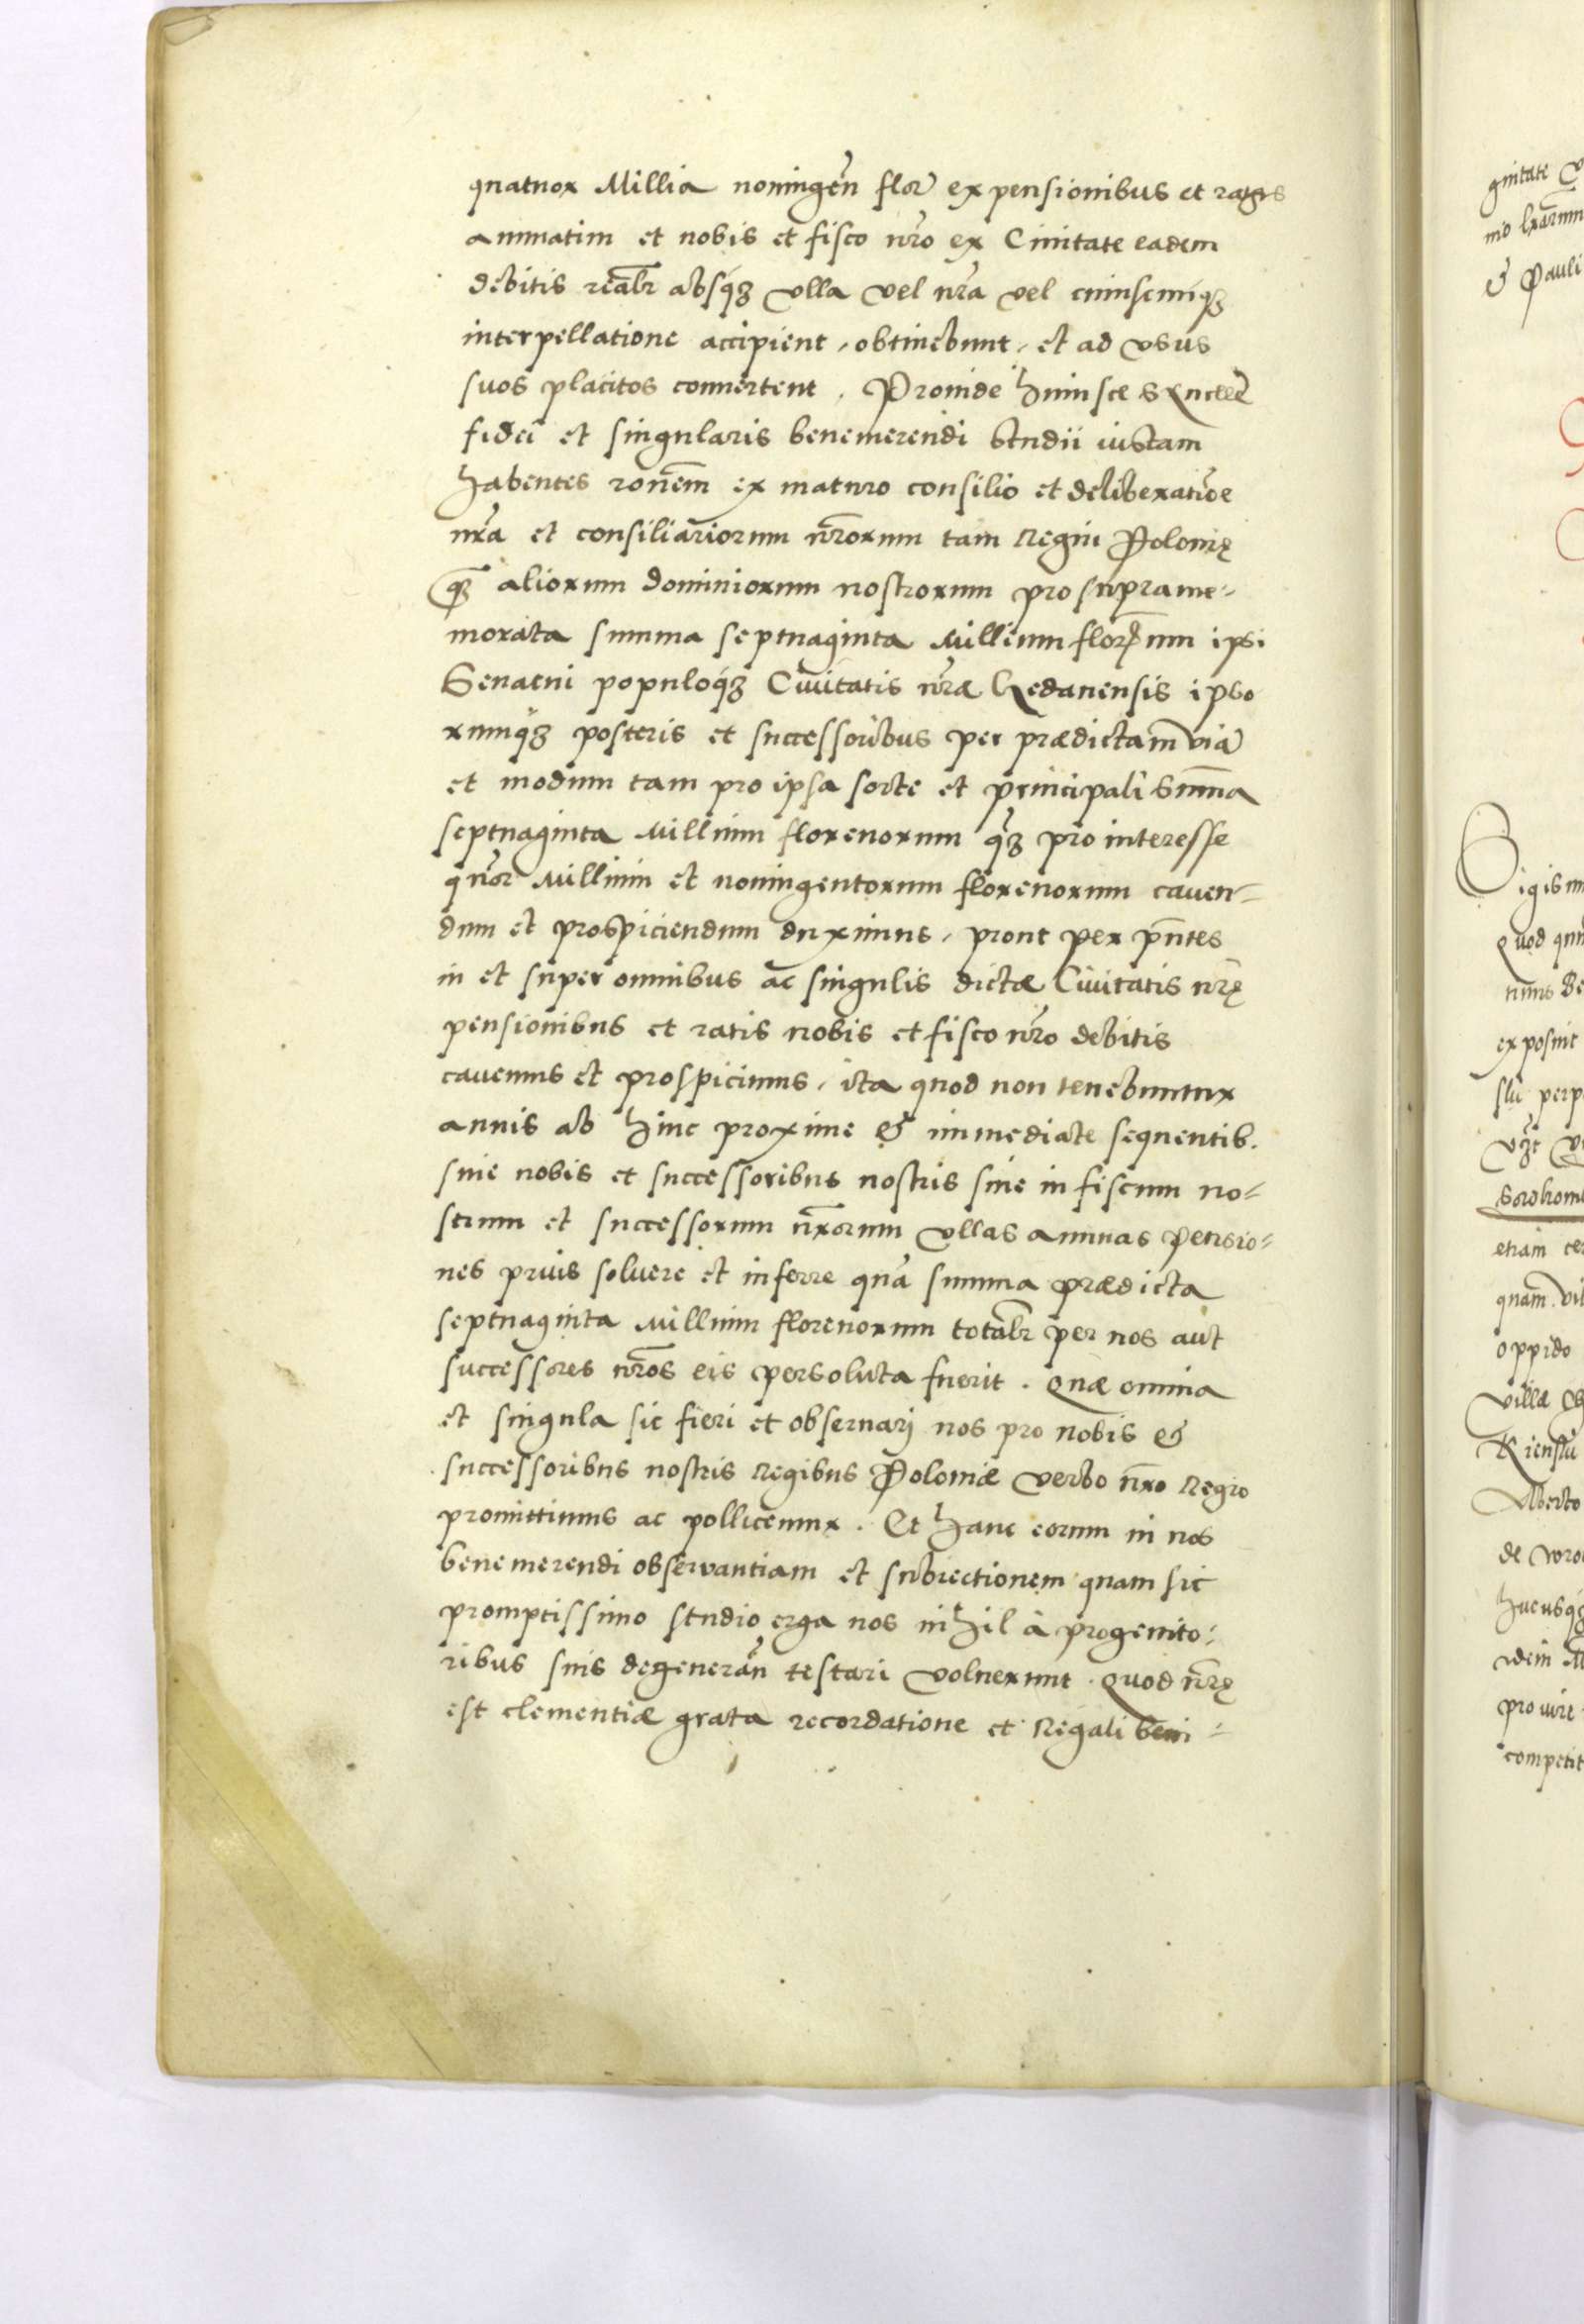 quatuor Millia noningen̄ flor̄ ex pensionibus et ratis
annuatim et nobis et fisco nr̄o ex Ciuitate eadem
debitis realr̄ absq́ꝫ vlla vel nr̄a vel cuiuscunq́ꝫ
interpellatione accipient, obtinebunt, et ad vsus
suos placitos conuertent. Proinde huiusce synceræ
fidei et singularis benemerendi studii iustam
habentes ron̄em ex maturo consilio et deliberatiōe
nr̄a et consiliariorum nr̄orum tam Regni Polonię
qꝫ̄ aliorum dominiorum nostrorum pro suprame-
morata summa septuaginta Millium florenorum ipsi
Senatui populoq́ꝫ Ciuitatis nr̄æ Gedanensis ipso
rumq́ꝫ posteris et successoribus per prædictam viā
et modum tam pro ipsa sorte et principali sum̄a
septuaginta Millium florenorum qꝫ̄ pro interesse
quor̄ Millium et noningentorum florenorum cauen-
dum et prospiciendum duximus, prout per pn̄tes
in et super omnibus ac singulis dictæ Ciuitatis nr̄ę
pensionibus et ratis nobis et fisco nr̄o debitis
cauemus et prospicimus, ita quod non tenebuntur
annis ab hinc proxime & immediate sequentib.
siue nobis et successoribus nostris siue in fiscum no-
strum et successorum nr̄orum vllas annuas pensio-
nes prius soluere et inferre quā summa prædicta
septuaginta Millium florenorum totalr̄ per nos aut
successores nr̄os eis persoluta fuerit. Quæ omnia
et singula sic fieri et obseruarj nos pro nobis &
successoribus nostris Regibus Poloniæ verbo nr̄o Regio
promittimus ac pollicemur. Et hanc eorum in nos
benemerendi observantiam et subiectionem quam sic
promptissimo studio erga nos nihil à progenito-
ribus suis degenerān testari voluerunt. Quod nr̄ę
est clementiæ grata recordatione et Regali beni-
gnitate
& Pauli
Sigism
Quod
exposuit
perp
etiam
quam
oppido
villæ
Alberto
de
competit